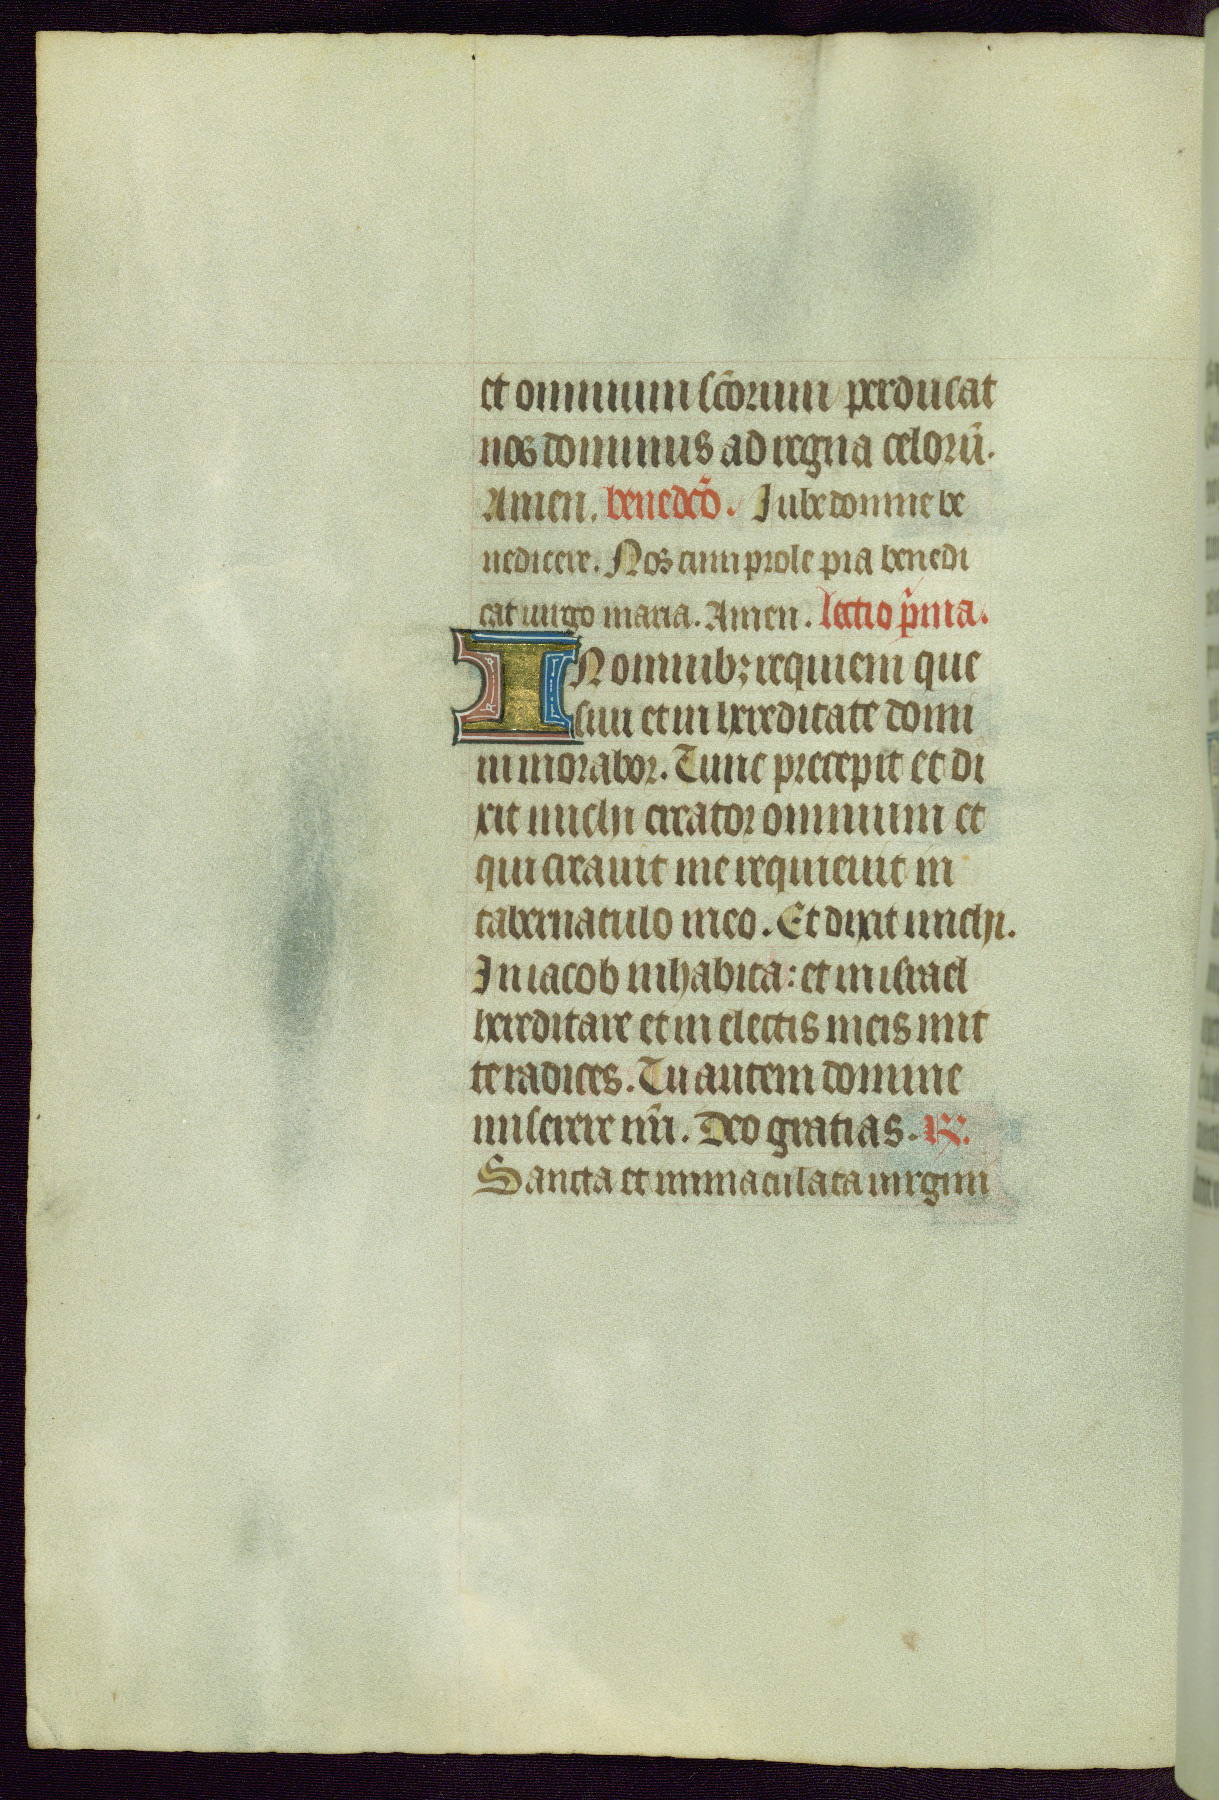 et omnium sc̄orum perducat
nos dominus ad regna celorū.
Amen. benedc̄o. Iube domne be
nedicere. Nos cum prole pia benedi
cat uirgo maria. Amen. lectio p̄ma.
IN omnibꝫ requiem que
siui et in hereditate domi
ni morabor. Tunc precepit et di
xit michi creator omnium et
qui creauit me requieuit in
tabernaculo meo. Et dixit michi.
In iacob inhabita: et in israel
hereditare et in electis meis mit
te radices. Tu autem domine
miserere nr̄i. Deo gratias. ℟.
Sancta et immaculata uirgini